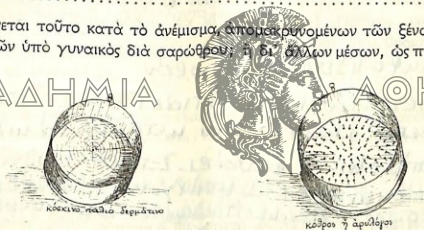 εται τοῦτο κατὰ τὸ ἀνέμισμα, ἀπομακρυνομένων τῶν ξένω
ῶν ὑπὸ γυναικὸς διὰ σαρώθρου; ἢ δι' ἄλλων μέσων, ὡς π
ΑΔΗΜΙΑ ΑΘΗ
κόσκινο παλιό δερμάτινο
κόθρος ἢ ἀρυλόγος